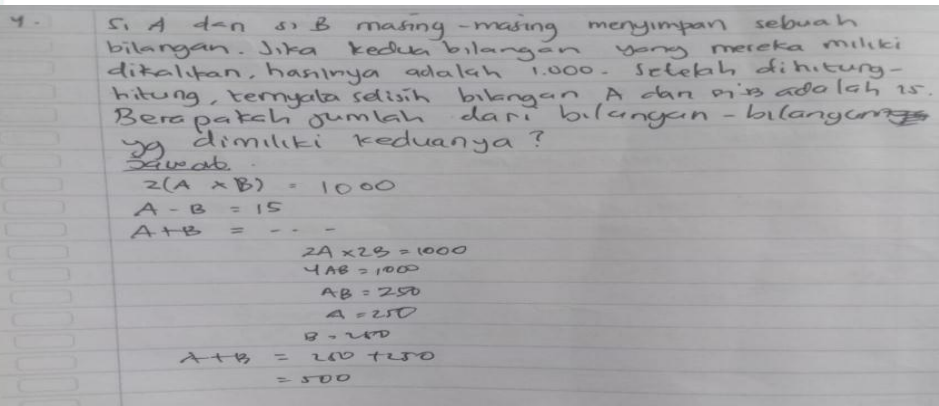 4. Si A dan si B masing-masing menyimpan sebuah
bilangan. Jika kedua bilangan yang mereka miliki
dikalikan, hasilnya adalah 1.000. Setelah dihitung-
hitung, ternyata selisih bilangan A dan B adalah 15.
Berapakah jumlah dari bilangan-bilangan
yg dimiliki keduanya?
Jawab.
2(A × B) = 1000
A - B = 15
A+B = - - -
2A × 2B = 1000
4AB = 1000
AB = 250
A = 250
B = 250
A+B = 250 + 250
= 500